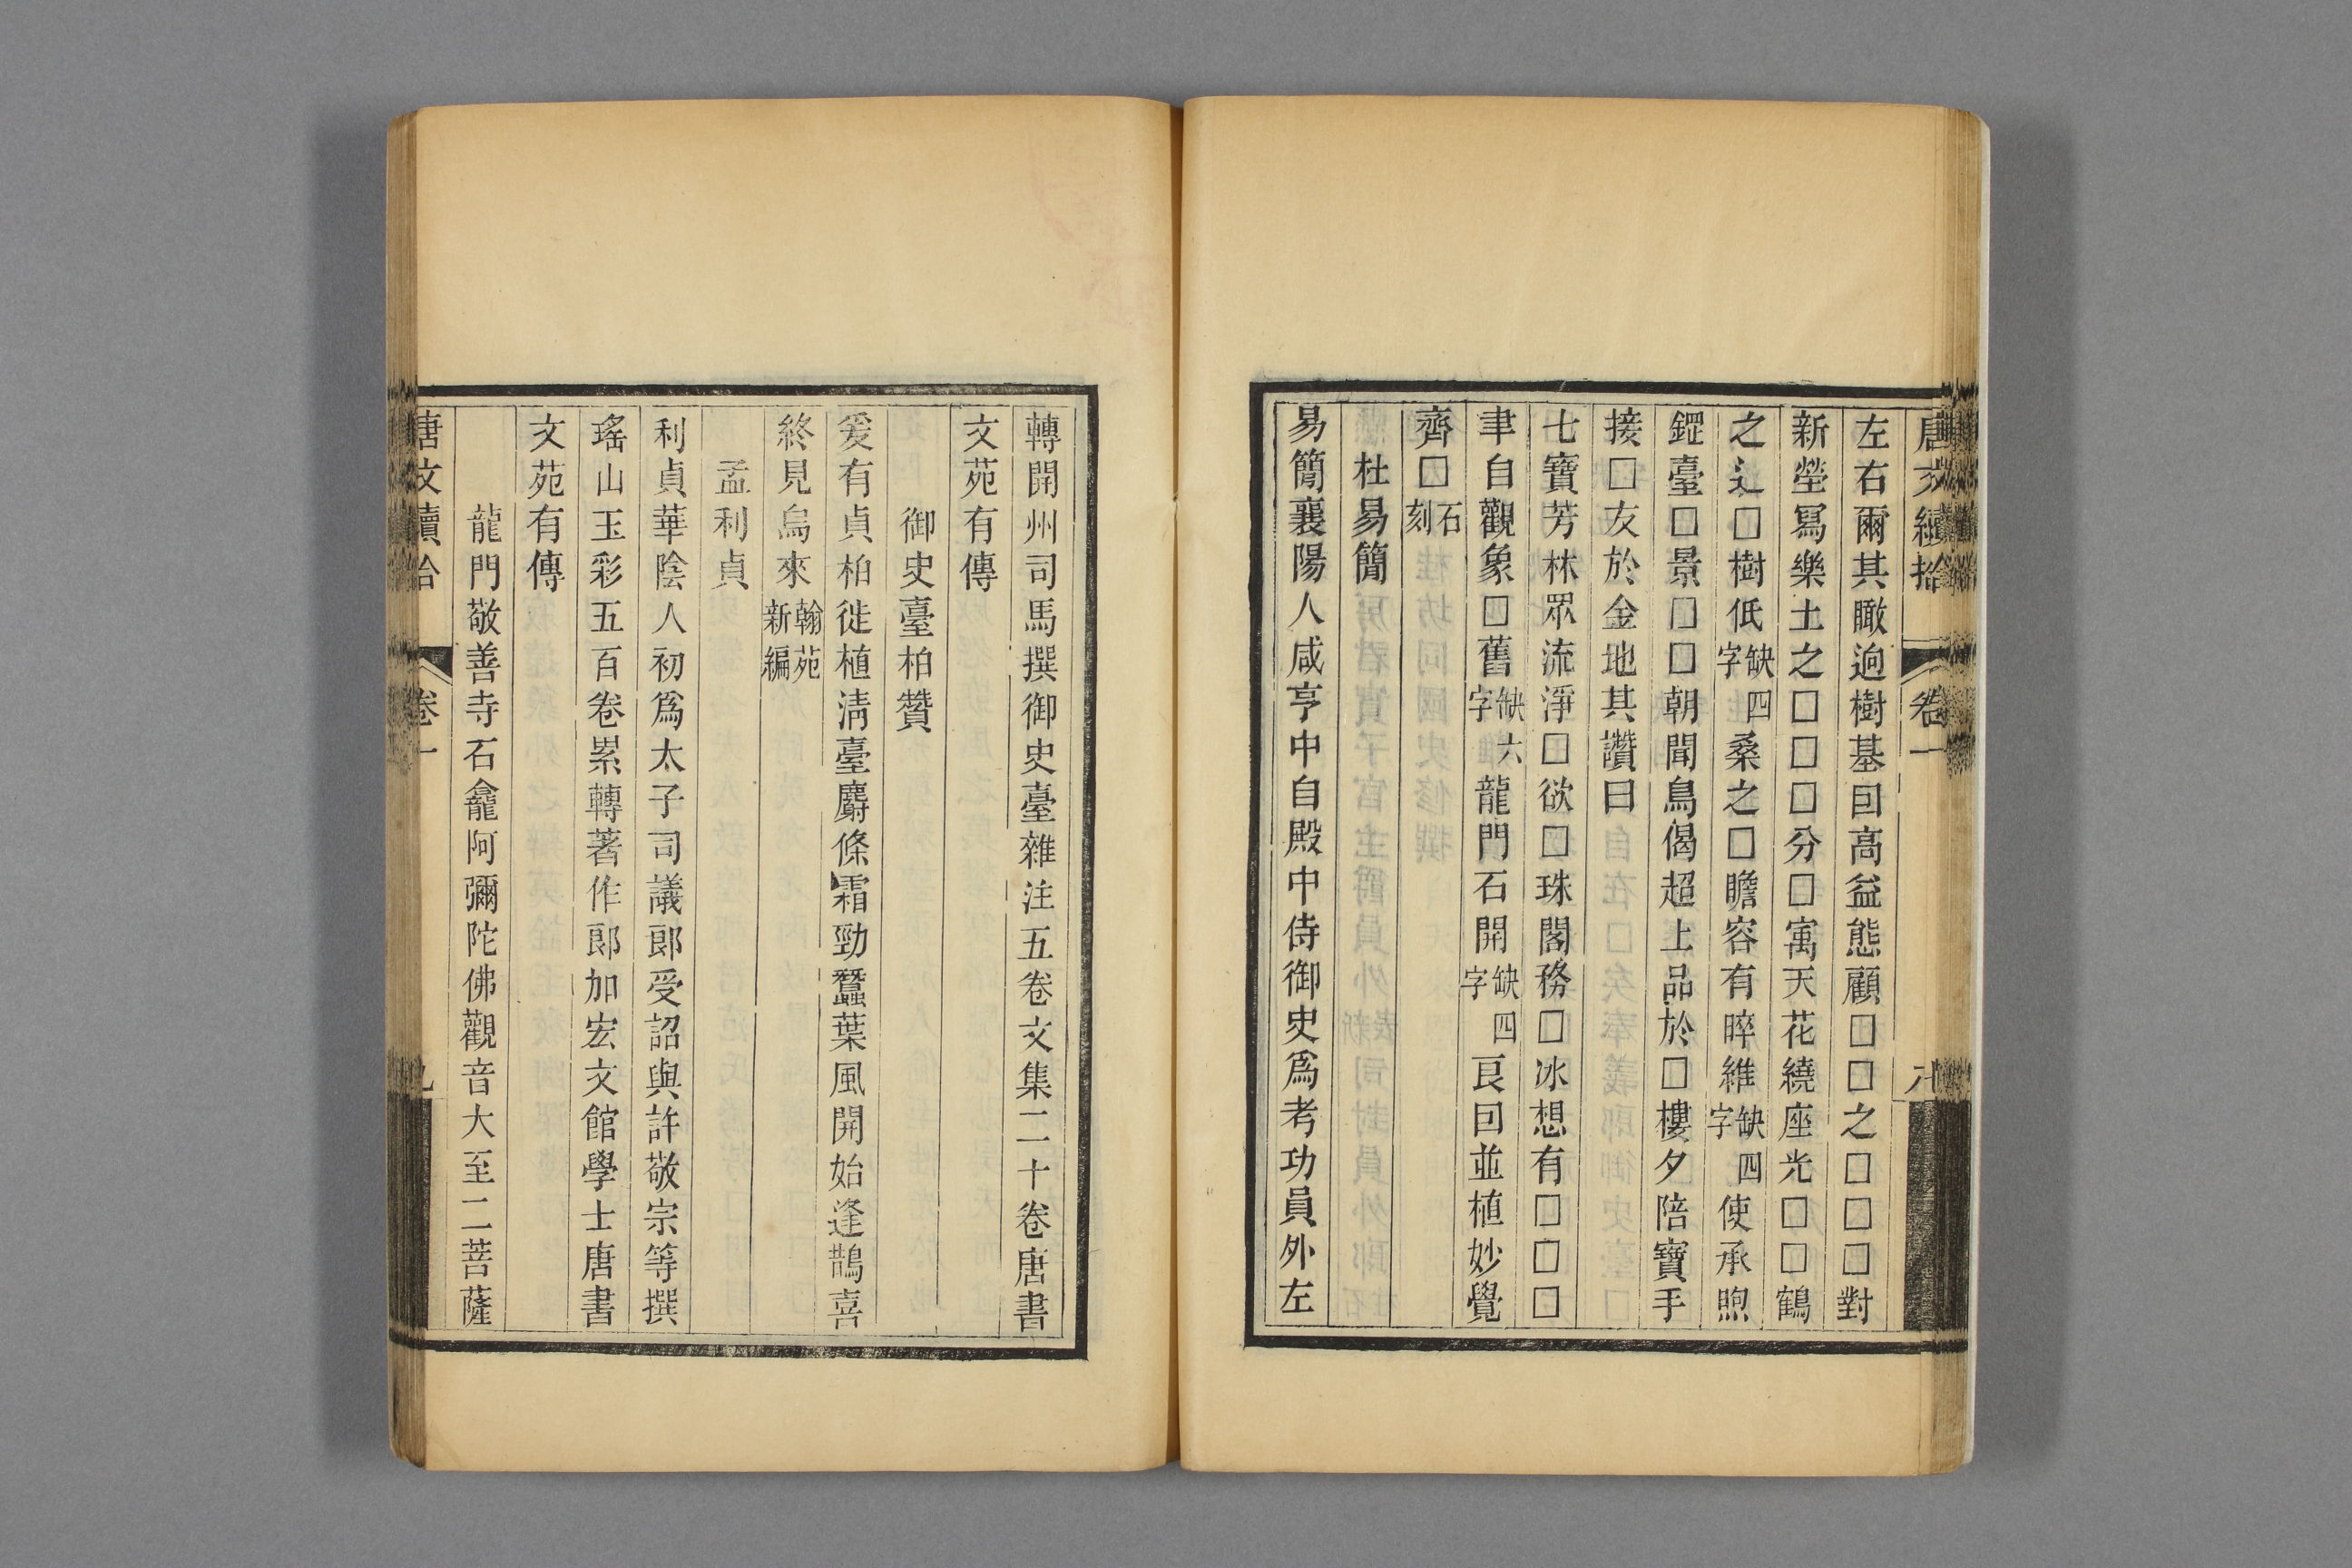 唐文續拾 卷一 八
左右爾其瞰逈樹基囙高益態顧□□之□□□對
新塋冩樂土之□□□分□寓天花繞座光□□鶴
之□樹低缺四字桑之□瞻容有睟維缺四字使承煦
臺□景□□朝聞鳥偈超上品於□樓夕陪寶手
接□友於金地其讚曰
七寶芳林眾流淨□欲□珠閣務□冰想有□□□
聿自觀象□舊缺六字龍門石開缺四字良囙並植妙覺
齊□石刻
杜易簡
易簡襄陽人咸亨中自殿中侍御史爲考功員外左
轉開州司馬撰御史臺雜注五卷文集二十卷唐書
文苑有傳
御史臺柏贊
爰有貞柏徙植淸臺麝條霜勁蠶葉風開始逢鵲喜
終見烏來翰苑新編
孟利貞
利貞華陰人初爲太子司議郎受詔與許敬宗等撰
瑤山玉彩五百卷累轉著作郎加宏文館學士唐書
文苑有傳
龍門敬善寺石龕阿彌陀佛觀音大至二菩薩
唐文續拾 卷一 九